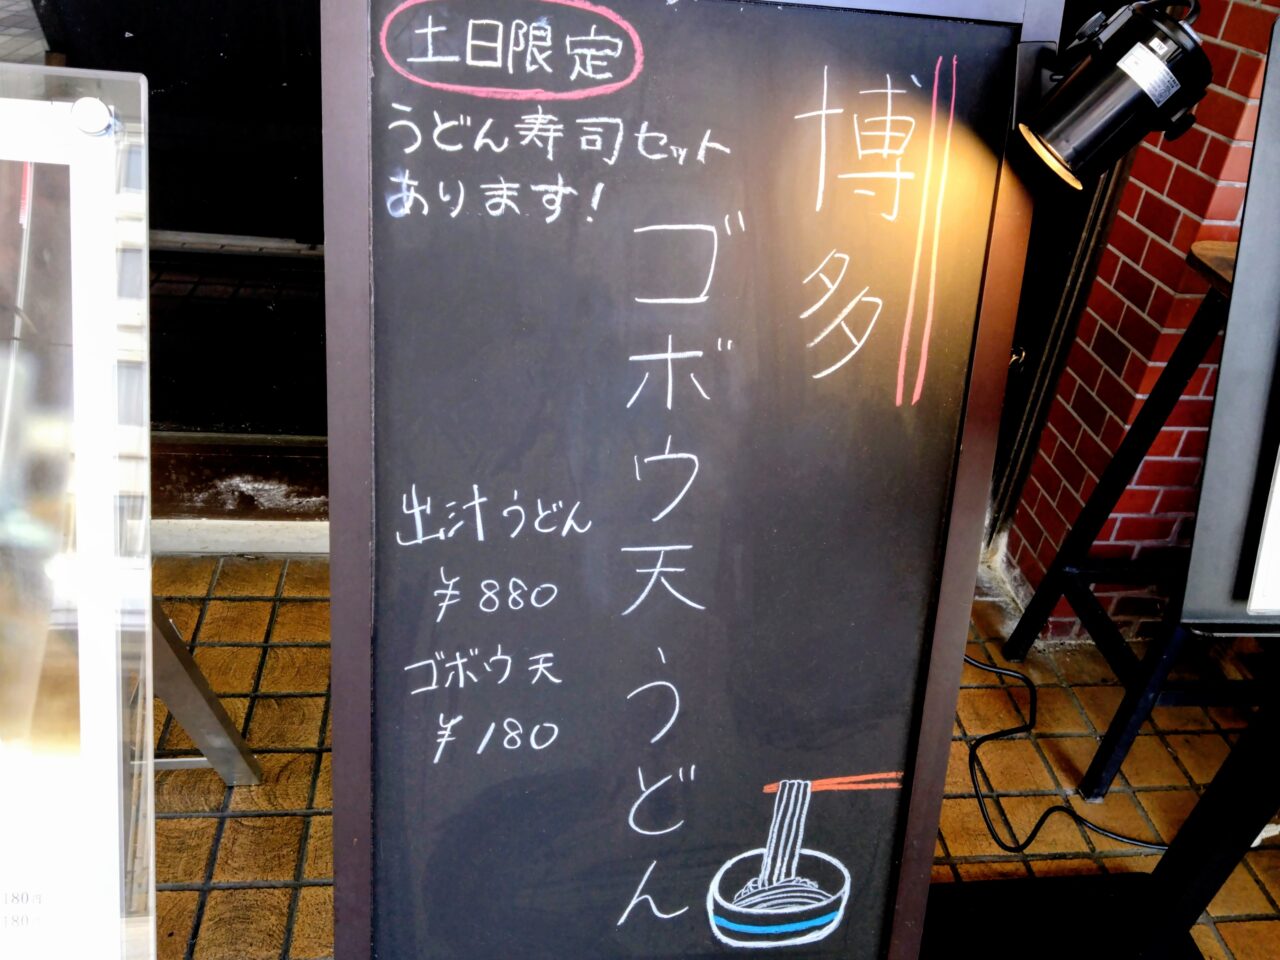 土日限定
うどん寿司セット
あります!
博多
ゴボウ天うどん
出汁うどん
¥880
ゴボウ天
¥180
180円
180円